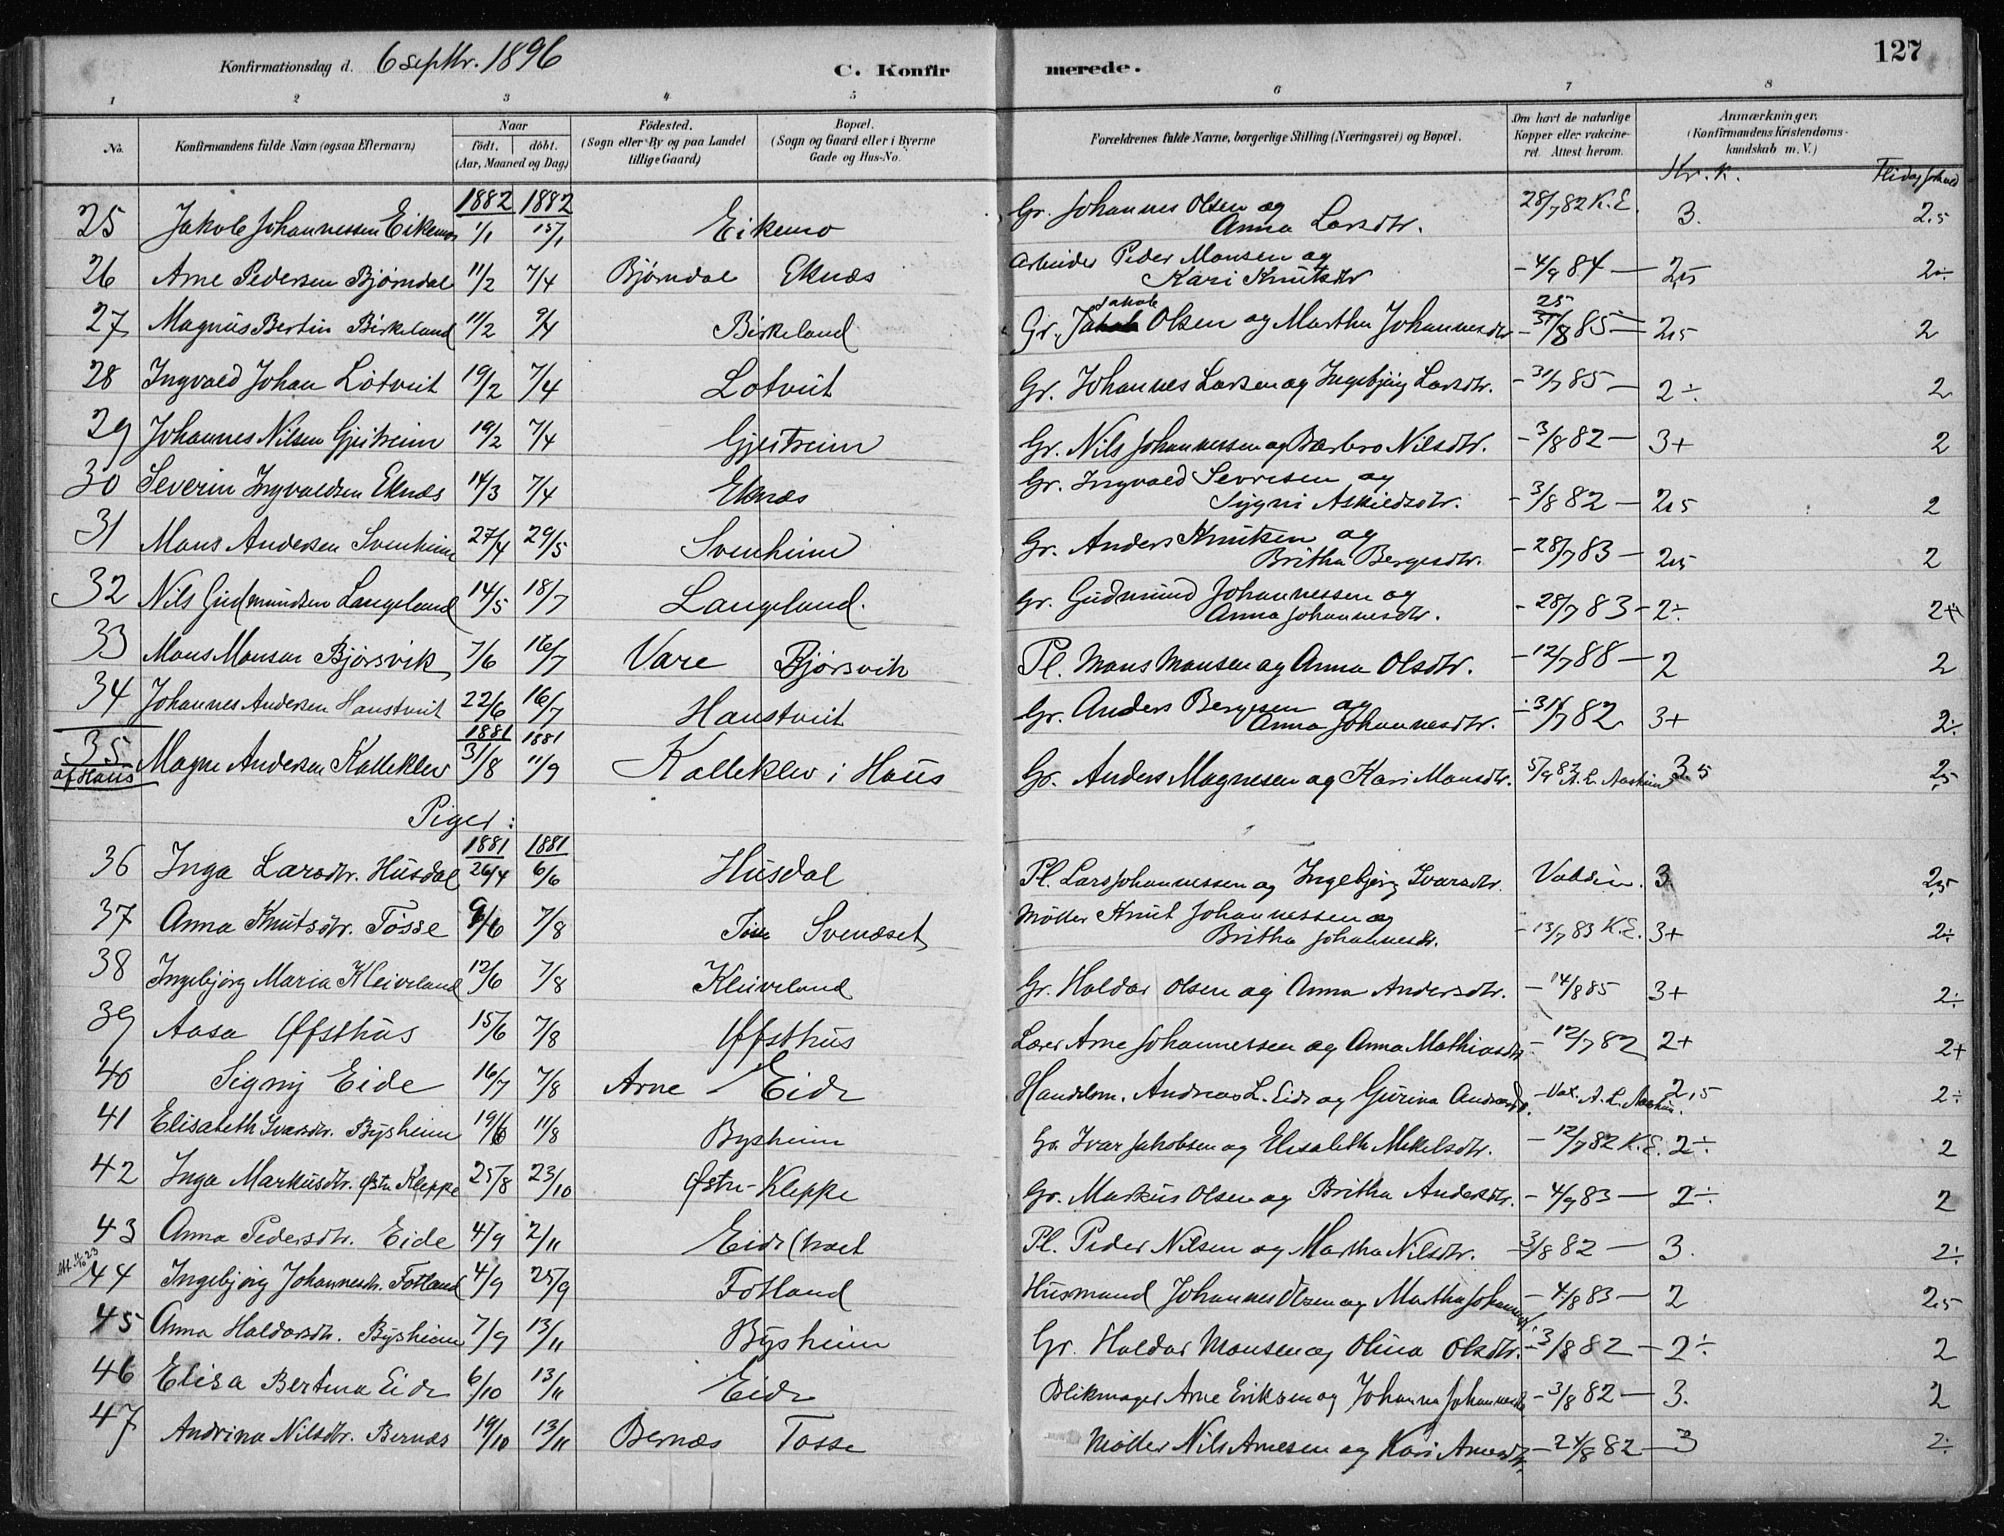 Konfirmationsdag d. 6 septbr. 1896 C. Konfirmerede. 127
1 2 3 4 5 6 7 8
No. Konfirmandens fulde Navn (ogsaa Efternavn) Naar født. døbt. (Aar, Maaned og Dag) Fødested. (Sogn eller By og paa Landet tillige Gaard) Bopæl. (Sogn og Gaard eller i Byerne Gade og Hus-No. Forældrenes fulde Navne, borgerlige Stilling (Næringsvei) og Bopæl. Om havt de naturlige Kopper eller vakcineret. Attest herom. Anmærkninger, (Konfirmandens Kristendomskundskab m. V.)
Kr. k. Flid og
1882 1882
25 Jakob Johannessen Eikemo 1/1 15/1 Eikemo Gr. Johannes Olsen og Anna Larsdtr. 28/7 82 K.E. 3. 2.5
26 Arne Pedersen Bjørndal 11/2 7/4 Bjørndal Eknæs Arbeider Peder Monsen og Kari Knutsdtr - 4/9 84 - 2,5 2÷
27 Magnus Bertin Birkeland 11/2 9/4 Birkeland Gr. Jakob Olsen og Martha Johannesdtr - 25/8 85 - 2,5 2
28 Ingvald Johan Løtveit 19/2 7/4 Løtveit Gr. Johannes Larsen og Ingebjørg Larsdtr. - 31/7 85 - 2÷ 2
29 Johannes Nilsen Gjeitreim 19/2 7/4 Gjeitreim Gr. Nils Johannessen og Barbro Nilsdtr. - 3/8 82 - 3+ 2
30 Severin Ingvaldsen Eknæs 14/3 7/4 Eknæs Gr. Ingvald Sevrisen og Signi Askildsdtr. - 3/8 82 - 2,5 2
31 Mons Andersen Svenheim 27/4 29/5 Svenheim Gr. Anders Knutsen og Britha Bergesdtr. - 28/7 83 - 2,5 2
32 Nils Gudmundsen Langeland 14/5 18/7 Langeland. Gr. Gudmund Johannessen og Anna Johannesdtr. - 28/7 83 - 2÷ 2+
33 Mons Monsen Bjørsvik 7/6 16/7 Vare Bjørsvik Pl. Mons Monsen og Anna Olsdtr. - 12/7 88 - 2 2
34 Johannes Andersen Haustveit 22/6 16/7 Haustveit Gr. Anders Bergesen og Anna Johannesdtr. - 31/7 82 3+ 2÷
1881 1881
35. af Haus Magne Andersen Kalleklev 31/8 11/9 Kalleklev i Haus Gr. Anders Magnesen og Kari Monsdtr. 5/9 82 A.L. 3.5 2,5
Piger:
1881 1881
36 Inga Larsdtr. Husdal 26/4 6/6 Husdal Pl. Lars Johannessen og Ingebjørg Ivarsdtr. 3 2,5
37 Anna Knutsdtr. Tøsse 9/6 7/8 Tøsse Svenæset Møller Knut Johannessen og Britha Johannesdtr. - 13/7 83 K.E. 3+ 2÷
38 Ingebjørg Maria Kleiveland 12/6 7/8 Kleiveland Gr. Haldor Olsen og Anna Andersdtr. - 14/8 85 3+ 2÷
39 Aasa Øfsthus 15/6 7/8 Øfsthus Lærer Arne Johannessen og Anna Mathiasdtr - 12/7 82 2+ 2+
40 Signy Eide 16/7 7/8 Arne Eide Handelsm. Andreas L. Eide og Gurina Andreasdtr. - Vax. A.L. 2,5 2÷
41 Elisabeth Ivarsdtr. Bysheim 19/6 11/8 Bysheim Gr. Ivar Jakobsen og Elisabeth Mikelsdtr. - 12/7 82 K.E. 2÷ 2
42 Inga Markusdtr. Østre Kleppe 25/8 23/10 Østre-Kleppe Gr. Markus Olsen og Britha Andersdtr. - 4/9 83 - 2÷ 2
43 Anna Pedersdtr. Eide 4/9 2/11 Eide Pl. Peder Nilsen og Martha Nilsdtr. 3/8 82 - 3. 2÷
44 Ingebjørg Johannesdtr. Fotland 4/9 25/9 Fotland Husmand Johannes Olsen og Martha - 4/8 83 - 2 2,5
45 Anna Haldorsdtr. Bysheim 7/9 13/11 Bysheim Gr. Haldor Monsen og Olina Olsdtr. - 3/8 82 - 2÷ 2
46 Elisa Bertina Eide 6/10 13/11 Eide Blikmager Arne Eriksen og Johanna Johannesdtr - 3/8 82 - 3. 2
47 Andrina Nilsdtr. Bernæs 19/10 13/11 Bernæs Tosse Møller Nils Arnesen og Kari Arnesdtr. - 24/8 82 - 3 2÷